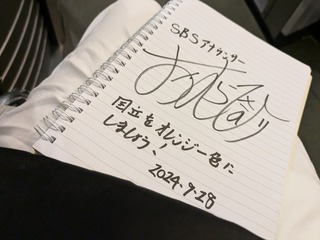 SBSアナウンサー
国立をオレンジ色に
しましょう!
2024.9.28